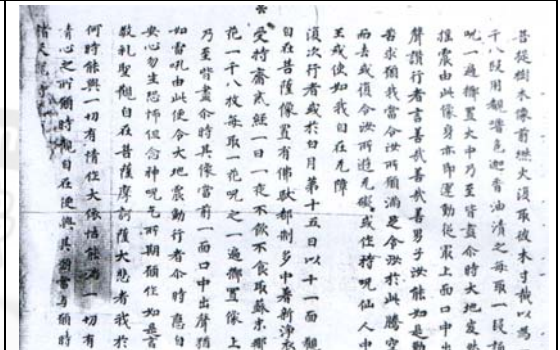 菩提樹木像前燃火復取彼木寸截以為一
千八段用覩嚕色迦香油漬之每取一段誦
呪一遍擲置火中乃至皆盡尒時大地欻
振震由此像身亦即運動從最上面口中出
聲讚行者言善哉善哉善男子汝能如是勤
苦求願我當令汝所願滿足令汝於此騰空
而去或復令汝所遊无礙或作持呪仙人中
王或使如我自在无障
復次行者或於白月第十五日以十一面觀
自在菩薩像置有佛馱都制多中著新淨衣
受持齋戒經一日一夜不飲不食取蘇末那
花一千八枚每取一花呪之一遍擲置像上
乃至皆盡尒時其像當前一面口中出聲猶
如雷吼由此便令大地震動行者尒時應自
安心勿生恐怖但念神呪乞所期願作如是言
敬礼聖觀自在菩薩摩訶薩大悲者我於
何時能與一切有情作大依怙能滿一切有
情心之所願時觀自在便與其願當与願時
諸天